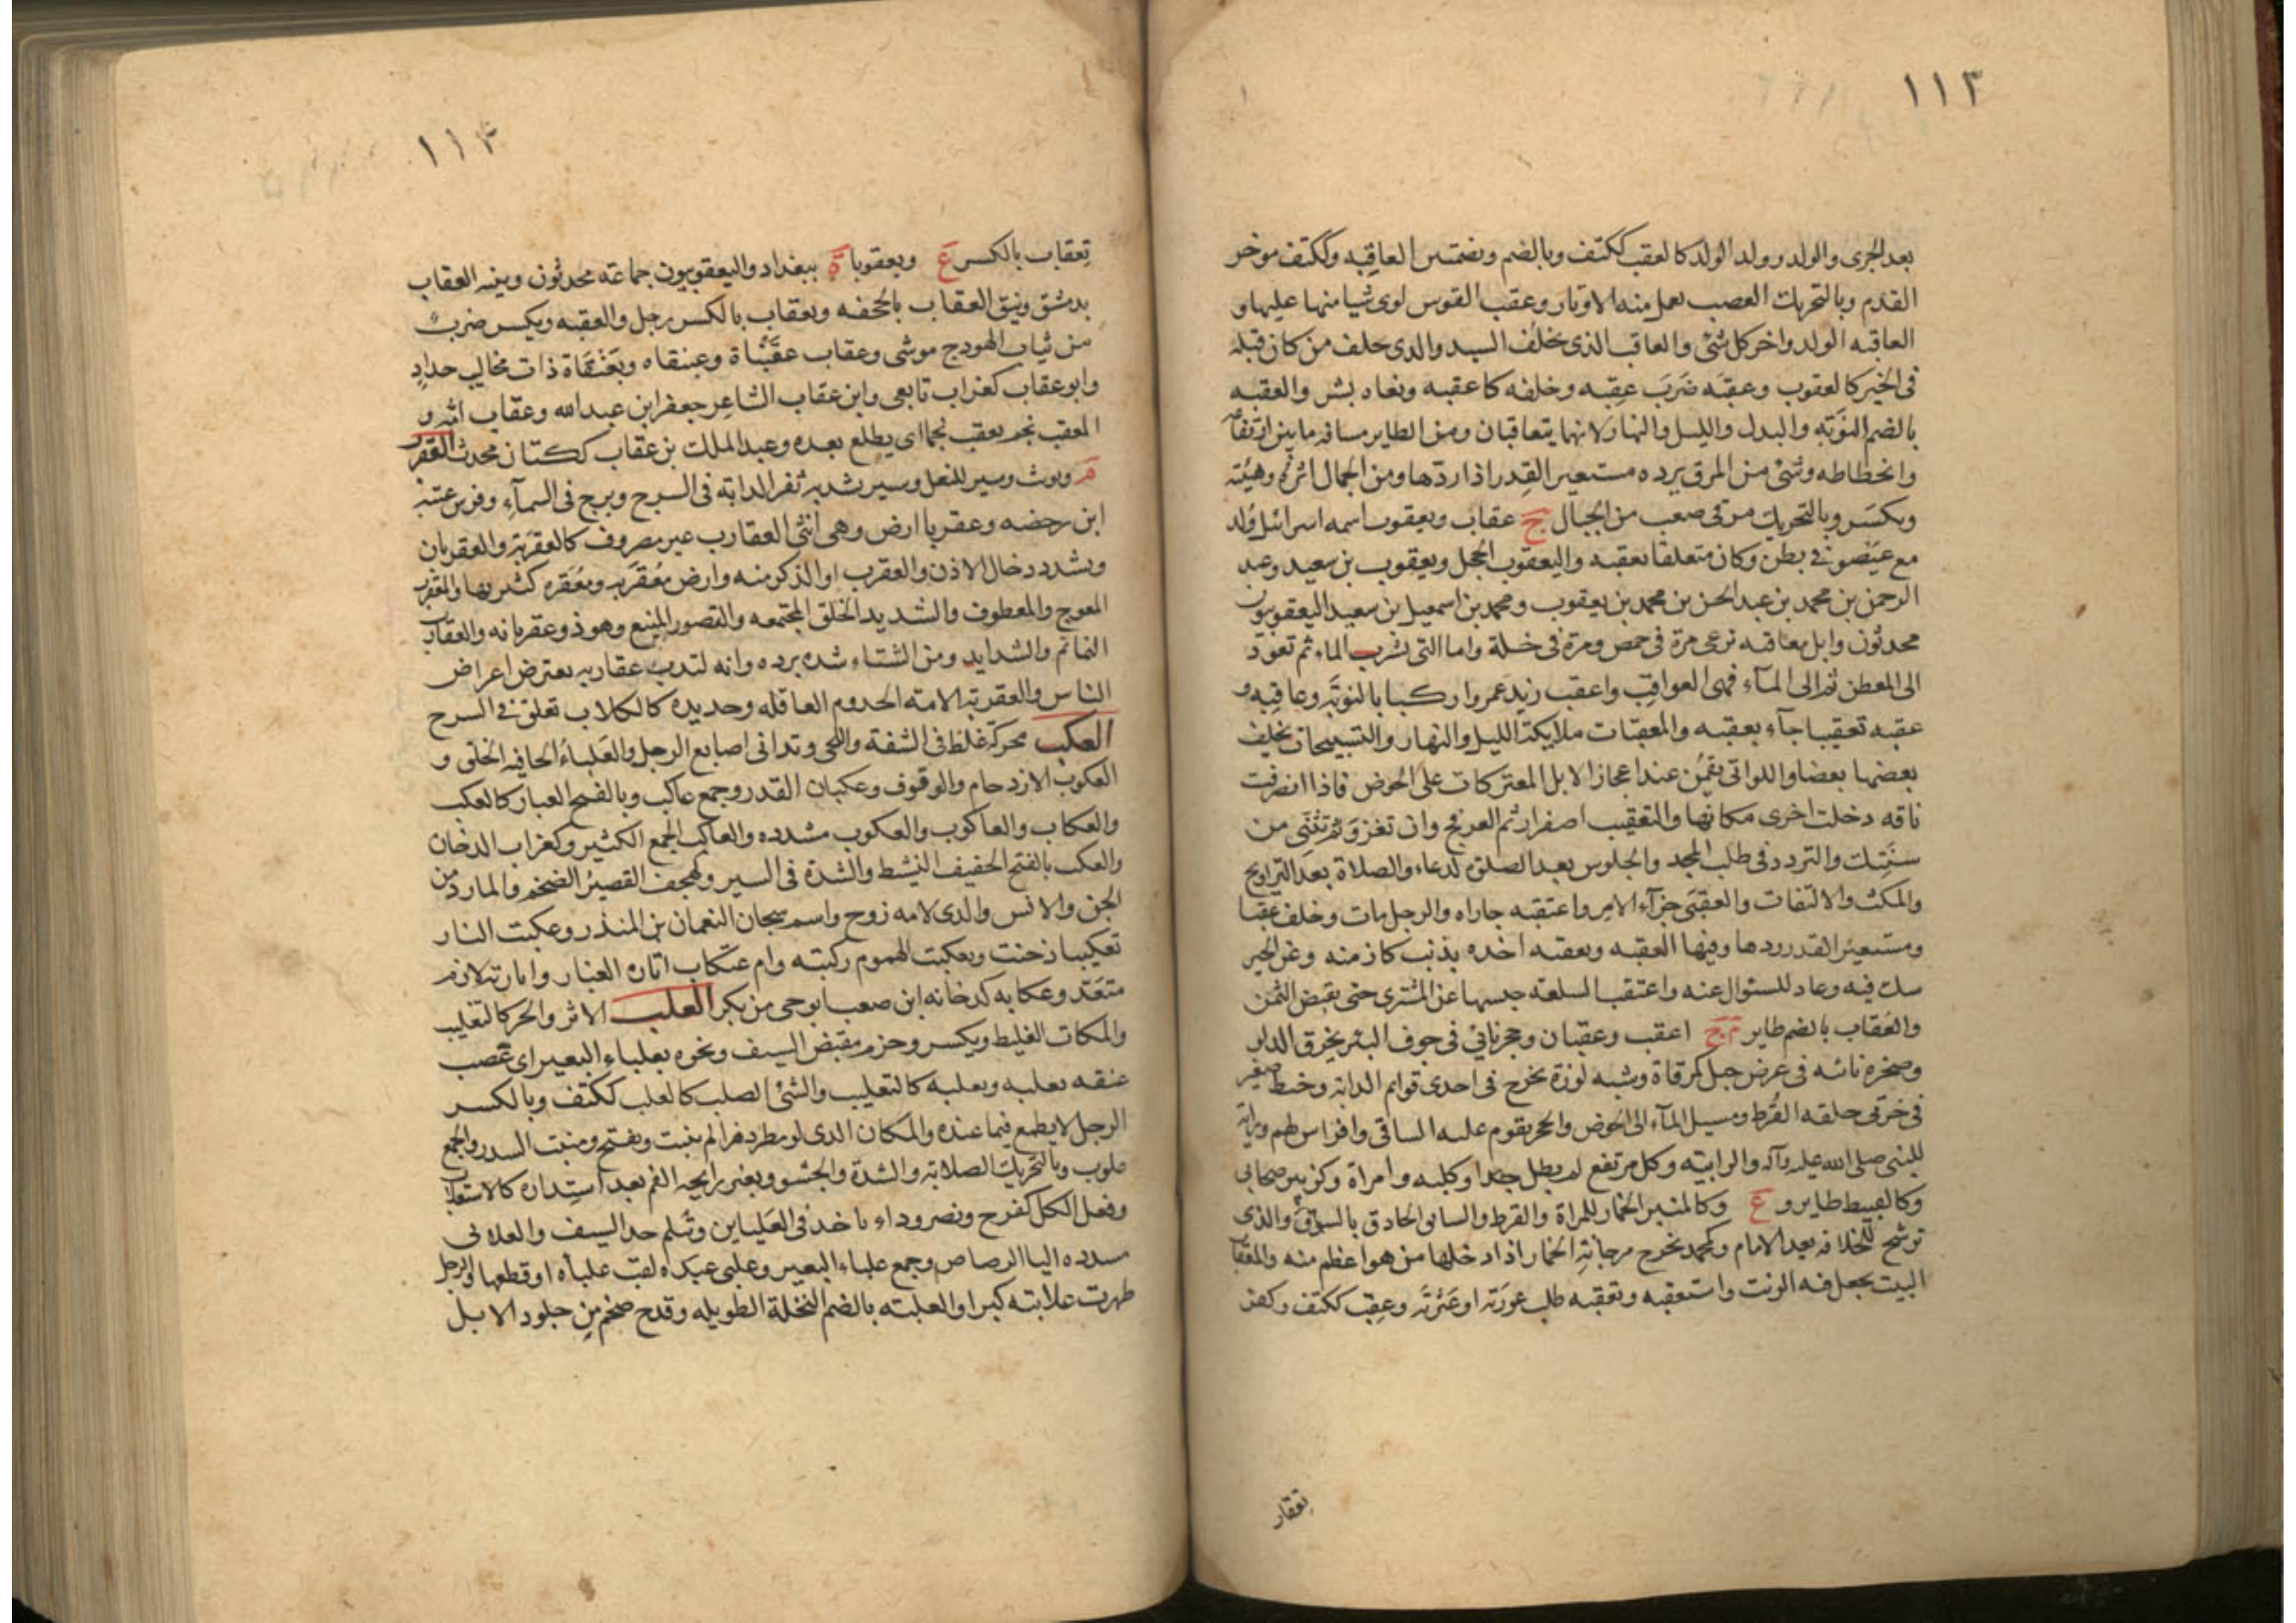 ١١٣
بعد الجرى والولد وولد الولد كالعقب ككتف وبالضم وبضمتين العاقبه وككتف موخر
القدم وبالتحريك العصب يعمل منه الاوتار وعقب القوس لوى شيا منها عليها و
العاقبه الولد واخر كل شئ والعاقب الذى يخلف السيد والذى خلف من كان قبله
فى الخير كالعقوب وعقبَه ضَرَبَ عقِبه وخلفه كاعقبه وبغاه بشر والعقبه
بالضم النوَبَه والبدل والليل والنهار لانهما يتعاقبان ومن الطاير مسافه مابين ارتفاعه
وانحطاطه وشئ من المرق يرده مستعير القِدر اذا ردّها ومن الجمال اثره وهيئته
ويكسَر وبالتحريك مرقى صعب من الجبال ج عقاب ويعقوب اسمه اسرائيل وُلد
مع عيصو فى بطن وكان متعلقا بعقبه واليعقوب الحجل ويعقوب بن سعيد وعبد
الرحمن بن محمد بن عبد الحسن بن محمد بن يعقوب ومحمد بن اسمعيل بن سعيد اليعقوبيون
محدثون وابل معاقبه ترعى مرة فى حمص ومرة فى خلة واما التى تشرب الماء ثم تعود
الى المعطن ثم الى المآء فهى العواقِب واعقب زيد عمرو اركبا بالنوَبَه وعاقبه و
عقبه تعقيبا جآء بعقبه والمعقبات ملايكة الليل والنهار والتسبيحات يخلف
بعضها بعضا واللواتى يقمُن عند اعجاز الابل المعتركات على الحوض فاذا انصرفت
ناقه دخلت اخرى مكانها والتعقيب اصفرار ثم العرفج وان تغزوَ ثم تثنّى من
سنَتِك والتردد فى طلب المجد والجلوس بعد الصلوة لدعاء والصلاة بعد التراويح
والمكث والالتفات والعقبَى جزآء الامر واعتقبه جاراه والرجل مات وخلف عقبا
ومستعير القدر ردها وفيها العقبه وتعقبه اخذه بذنب كان منه وعن الخبر
شك فيه وعاد للسئوال عنه واعتقب السلعه حبسها عن المشترى حتى يقبض الثمن
والعُقاب بالضم طاير م ج اعقب وعقبان وحجر ناتئ فى جوف البئر يخرق الدلو
وصخره ناتئه فى عرض جبل كمرقاة وشبه لوزة تخرج فى احدى قوايم الدابه وخيط صغير
فى خرتى حلقه القُرط ومسيل المآء الى الحوض والحجر يقوم عليه الساقى وافراس لهم وراية
للنبى صلى الله عليه وآله والرابيه وكل مرتفع لم يطل جدا وكلبه وامراة وكزبير صحابى
وكالقبيط طاير و ع وكالمنبر الخمار للمراة والقرط والسابق الحاذق بالسوق والذى
توشح للخلافه بعد الامام وكمحمد نخرج مرجانه الخمار اذا دخلها من هو اعظم منه والمعقاب
البيت يجعل فيه الزبت واستعقبه وتعقبه طلب عورَته او عَثرَتَه وعقب ككتف وكفر
تعقاب
١١٤
تِعقاب بالكسر ع وبعقوبا ة ببغداد واليعقوبيون جماعه محدثون وثنيه العقاب
بدمشق ونيق العقاب بالجحفه وتعقاب بالكسر رجل والعقبه ويكسر ضرب
من ثياب الهودج موشى وعقاب عقَبْناة وعبنقاه وبَعَنْقاة ذات مخاليب حدادٍ
وابو عقاب كغراب تابعى وابن عقاب الشاعر جعفر ابن عبد الله وعقاب امه و
المعقب نجم يعقب نجما اى يطلع بعده وعبد الملك بن عقاب ككتان محدث العقرب
م ويونث وسير للنعل وسير يشد به ثفر الدابه فى السرج وبرج فى السمآء وفرس عتبة
ابن رحضه وعقربا ارض وهى انثى العقارب غير مصروف كالعقربة والعقربان
ويشدد دخال الاذن والعقرب او الذكر منه وارض مُعقربه ومُعقره كثيرتها والمعقرب
المعوج والمعطوف والشديد الخلق المجتمعه والنصور المنيع وهو ذو عقربانه والعقارب
النمائم والشدايد ومن الشتاء شده برده وانه لتدب عقاربه يعترض اعراض
الناس والعقربة الامته الخدوم العاقله وحديده كالكلاب تعلق فى السرج
العكب محركة غلظ فى الشفة واللحى وتدانى اصابع الرجل والعَلباءُ الجافيه الخلق و
العكوب الازدحام والوقوف وعكبان القدر وجمع عاكب وبالفتح الغبار كالعكب
والعكاب والعاكوب والعكوب مشدده والعاكب الجمع الكثير وكغراب الدخان
والعكب بالفتح الخفيف النشيط والشدة فى السير وكهجف القصير الضخم والمارد من
الجن والانس والذى لامه زوج واسم سجان النعمان بن المنذر وعكبت النار
تعكيبا دخنت وتعكبت الهموم ركبته وام عتكاب اثاره الغبار
وعكابه كدخانه ابن صعب ابو حى من بكر العلب الاثر والحز كالتعليب
والمكان الغليظ ويكسر وحزم مقبض السيف ونحوه بعلباء البعير اى عصب
عنقه يعلبه ويعلبه كالتعليب والشئ الصلب كالعلب ككتف وبالكسر
الرجل لا يطمع فيما عنده والمكان الذى لو مطر دهرا لم ينبت ويفتح ومنبت السدر والجمع
علوب وبالتحريك الصلابة والشدة والجشو وتغير رايحه الفم بعد استِداره كالاستعلاب
وفعل الكل كفرح ونصر وداء ياخذ فى العَليباين وتثلم حد السيف والعلابى
مشدده اليا الرصاص وجمع علباء البعير وعلبى عبده لقب علباه او قطعها والرجل
ظهرت علابيه كبرا والعلبته بالضم النخلة الطويله وقدح ضخم من جلود الابل